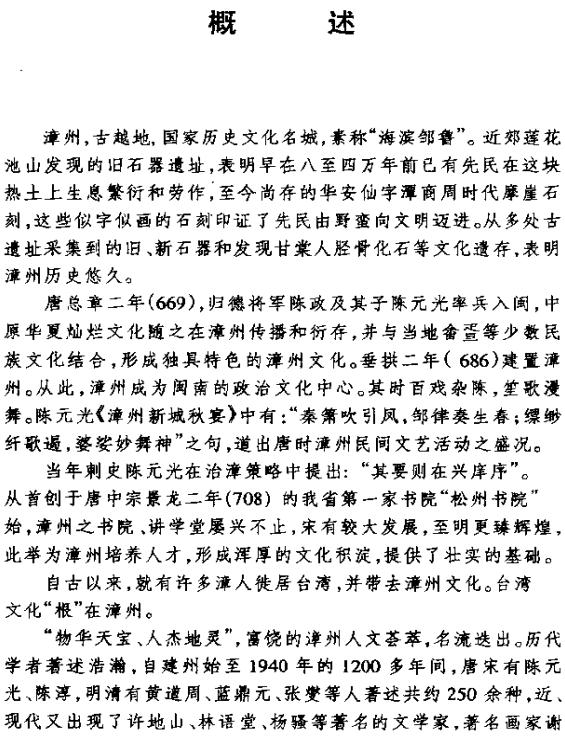 概　　述
漳州,古越地,国家历史文化名城,素称“海滨邹鲁”。近郊莲花
池山发现的旧石器遗址,表明早在八至四万年前已有先民在这块
热土上生息繁衍和劳作,至今尚存的华安仙字潭商周时代摩崖石
刻,这些似字似画的石刻印证了先民由野蛮向文明迈进。从多处古
遗址采集到的旧、新石器和发现甘棠人胫骨化石等文化遗存,表明
漳州历史悠久。
唐总章二年(669),归德将军陈政及其子陈元光率兵入闽,中
原华夏灿烂文化随之在漳州传播和衍存,并与当地畲疍等少数民
族文化结合,形成独具特色的漳州文化。垂拱二年( 686)建置漳
州。从此,漳州成为闽南的政治文化中心。其时百戏杂陈,笙歌漫
舞。陈元光《漳州新城秋宴》中有:“秦箫吹引凤,邹律奏生春;缥缈
纤歌遏,婆娑妙舞神”之句,道出唐时漳州民间文艺活动之盛况。
当年刺史陈元光在治漳策略中提出: “其要则在兴庠序”。
从首创于唐中宗景龙二年(708) 的我省第一家书院“松州书院”
始,漳州之书院、讲学堂屡兴不止,宋有较大发展,至明更臻辉煌,
此举为漳州培养人才,形成浑厚的文化积淀,提供了壮实的基础。
自古以来,就有许多漳人徙居台湾,并带去漳州文化。台湾
文化“根”在漳州。
“物华天宝、人杰地灵”,富饶的漳州人文荟萃,名流迭出。历代
学者著述浩瀚,自建州始至 1940 年的 1200 多年间,唐宋有陈元
光、陈淳,明清有黄道周、蓝鼎元、张燮等人著述共约 250 余种,近、
现代又出现了许地山、林语堂、杨骚等著名的文学家,著名画家谢